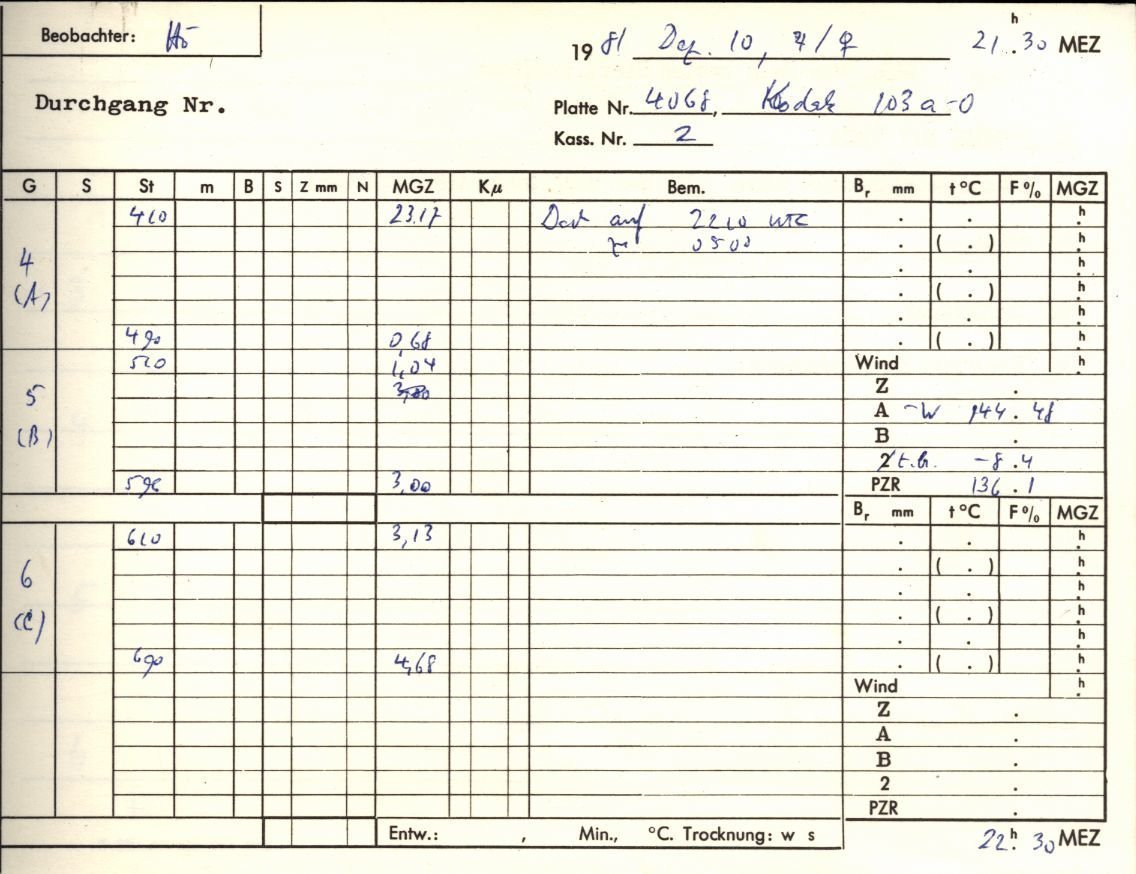 Beobachter: Hö
19 81 Dez. 10, ♃/♀ 21h.30 MEZ
Durchgang Nr.
Platte Nr. 4068, Kodak 103a-O
Kass. Nr. 2
G S St m B S Z mm N MGZ Kμ Bem. Br mm t °C F% MGZ
410 23.17 Dat auf 2210 UTC . . h
4 0500 . ( . ) h
(A) . . h
. ( . ) h
. . h
490 0,68 . ( . ) h
510 1,04 Wind h
5 Z .
A -W 144.48
(B) B .
2 t.b. -8.4
590 3,00 PZR 136.1
Br mm t °C F% MGZ
610 3,13 . . h
6 . ( . ) h
. . h
(C) . ( . ) h
. . h
690 4,68 . ( . ) h
Wind h
Z .
A .
B .
2 .
PZR .
Entw.: , Min., °C. Trocknung: w s 22h.30 MEZ